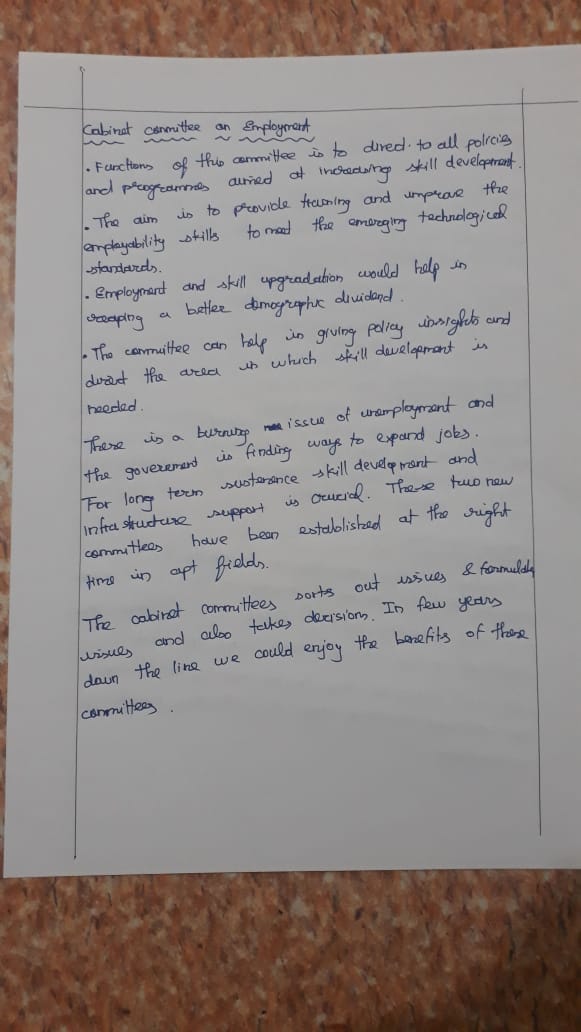 Cabinet committee on Employment
. Functions of this committee is to direct to all policies
and programmes aimed at increasing skill development.
. The aim is to provide training and improve the
employability skills to meet the emerging technological
standards.
. Employment and skill upgradation would help in
reaping a better demographic dividend.
. The committee can help in giving policy insights and
direct the area in which skill development is
needed.
There is a burning issue of unemployment and
the goverement is finding ways to expand jobs.
For long term sustenance skill development and
infrastructure support is crucial. These two new
committees have been established at the right
time in apt fields.
The cabinet committees sorts out issues & formulates
issues and also takes decisions. In few years
down the line we could enjoy the benefits of these
committees.